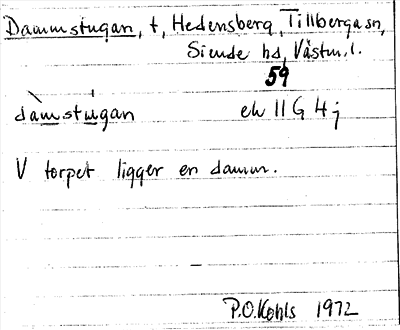 Dammstugan, t, Hedensberg, Tillberga sn,
Siende hd, Västm. l.
59
dàmstúgan ek 11 G 4 j
V torpet ligger en damm.
P.O. Kohls 1972